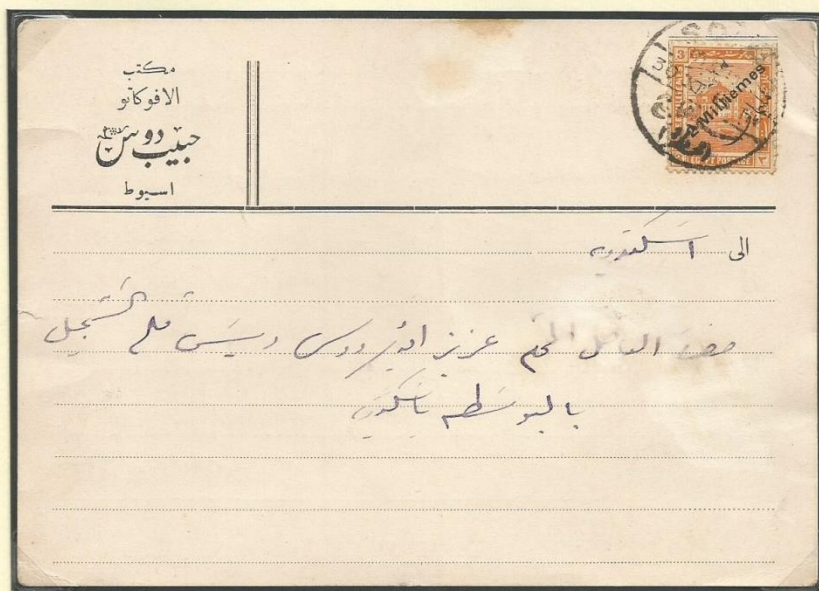 مكتب
الافوكاتو
حبيب دوس
اسيوط
3
2 Milliemes
EGYPT POSTAGE
٣
الى اسكندريه
حضرة الفاضل المحترم عزيز دوس رئيس قلم التسجيل
بالبوسطه باسكندريه